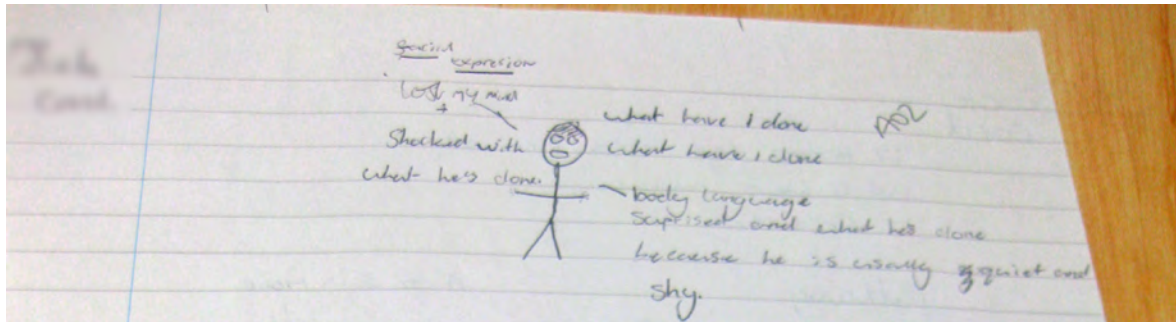 facial
expresion
Lost my mind
+
Shocked with
what he's done.
what have I done
what have I done
AO2
body language
Suprised and what he's done
because he is usually quiet and
shy.